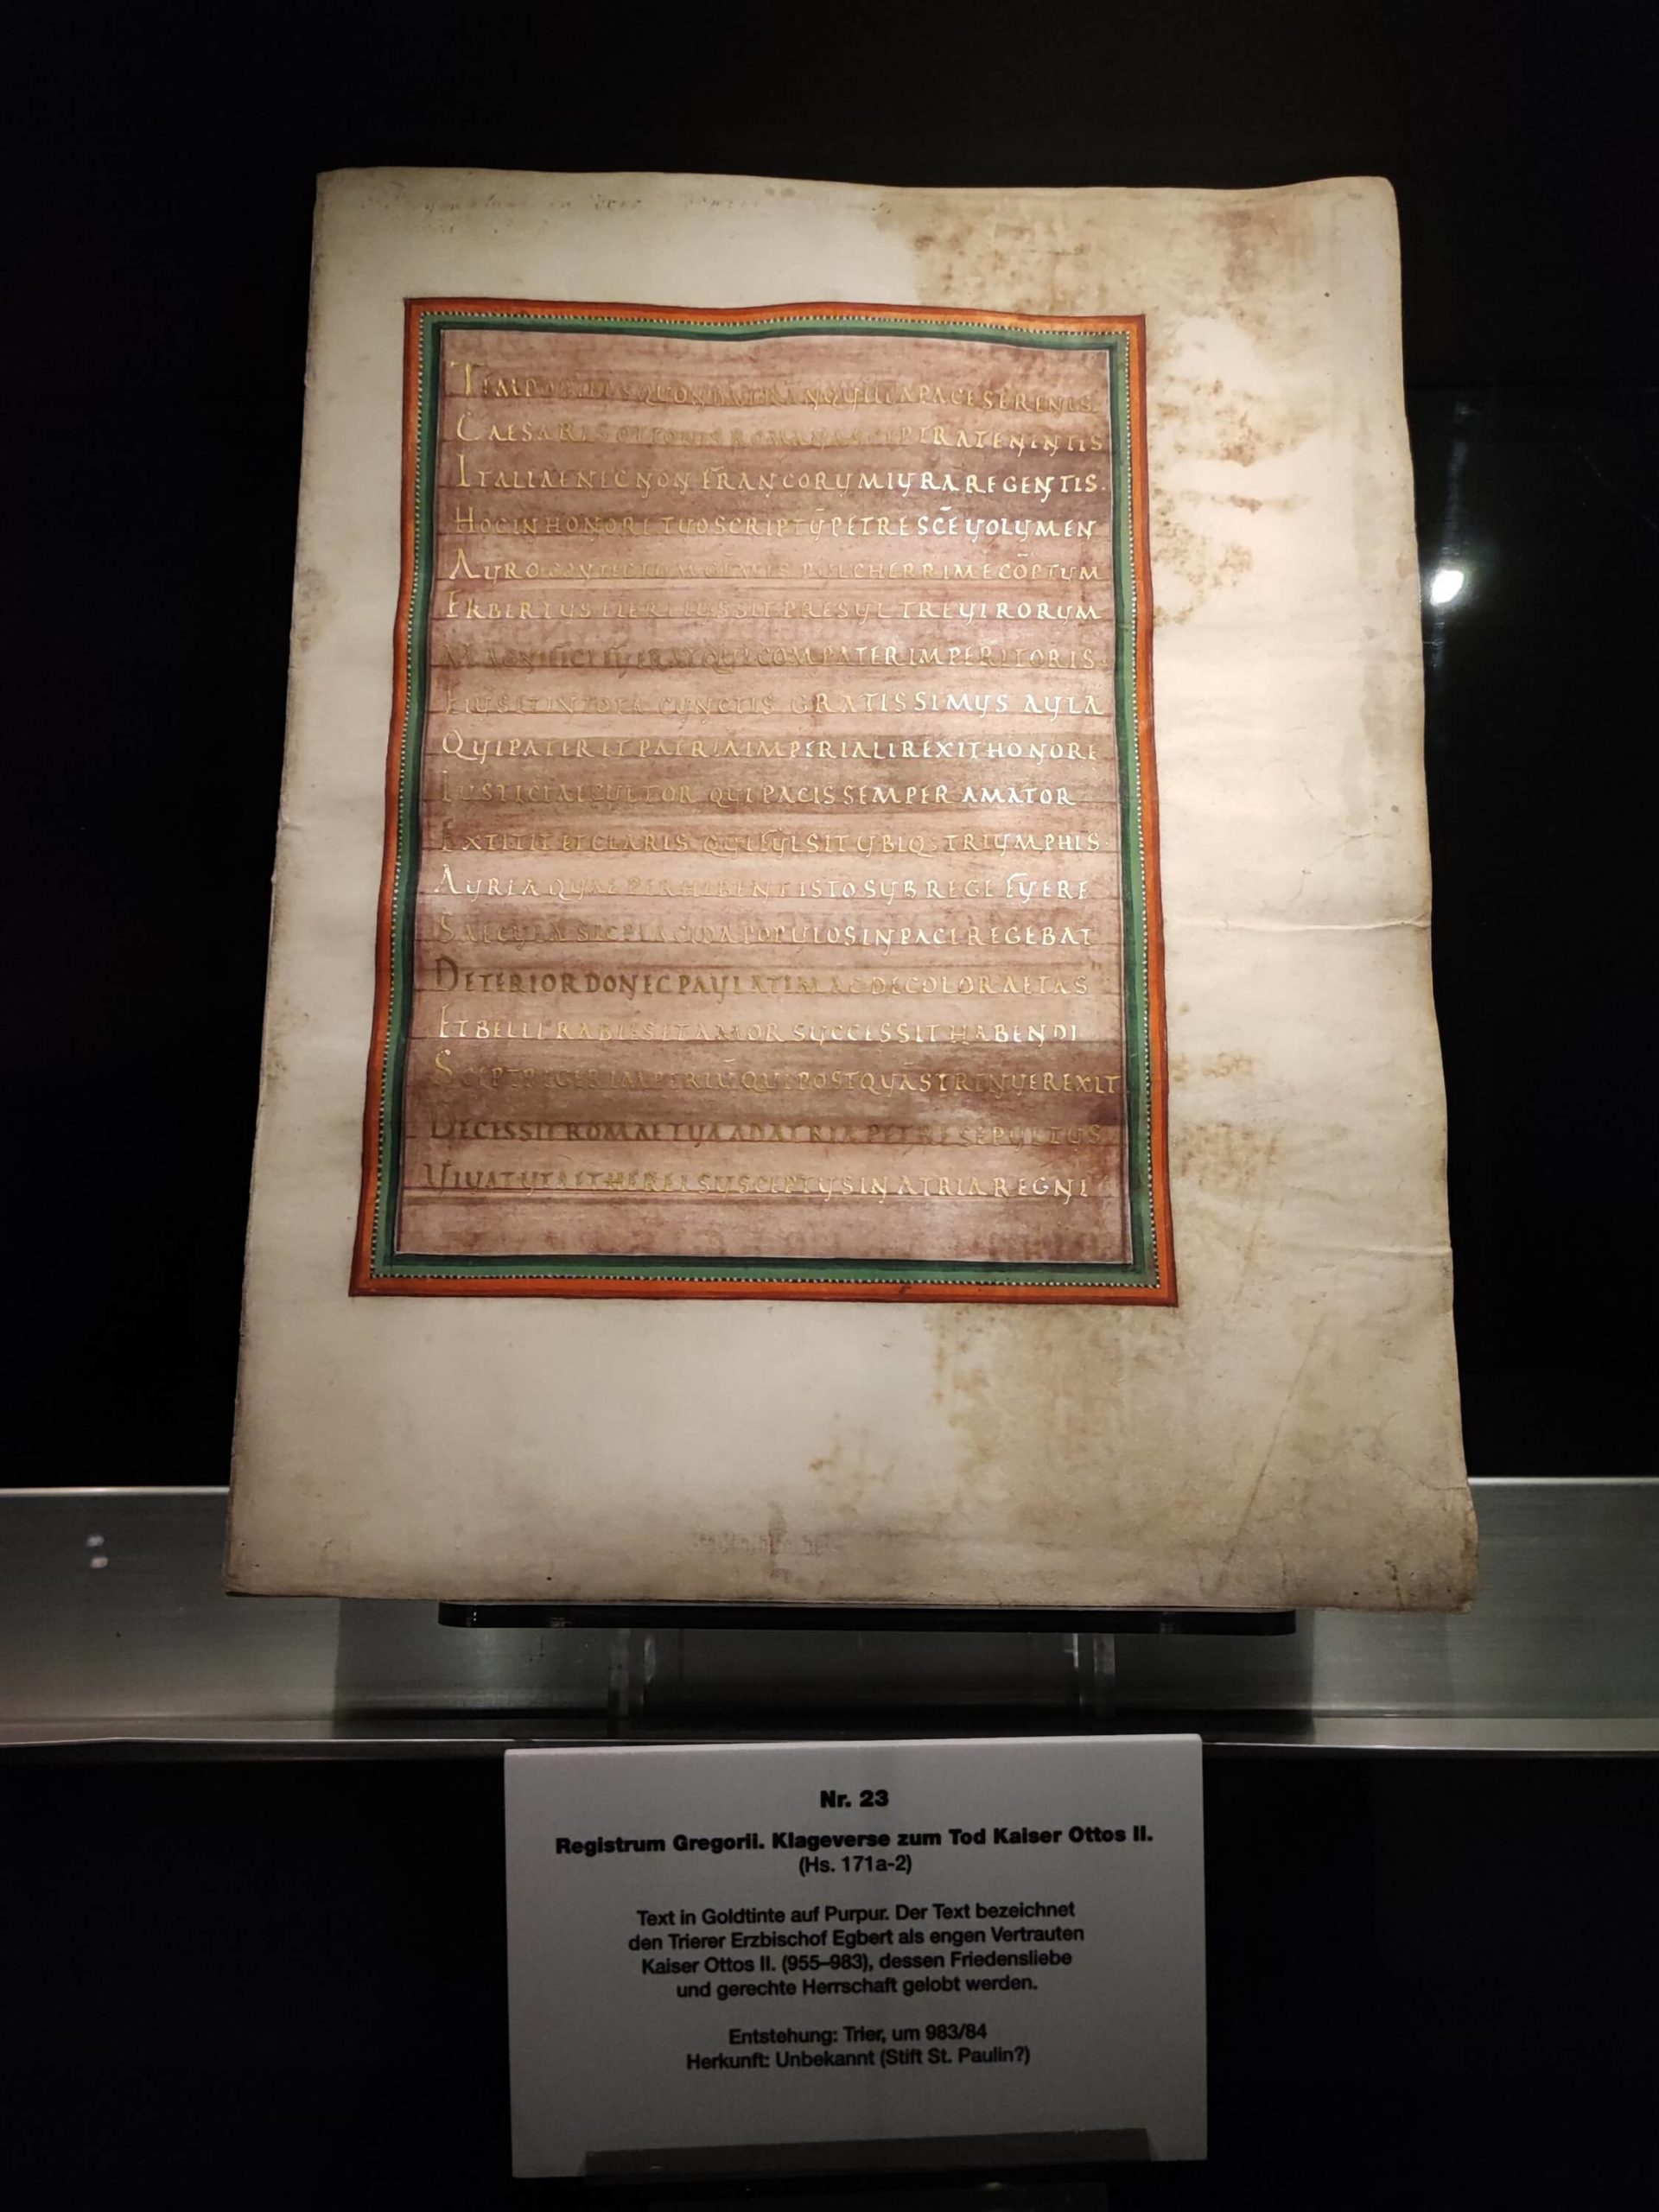 TEMPORIBUS QUONDAM TRANQUILLA PACE SERENIS
CAESARIS OTTONIS ROMANA SCEPTRA TENENTIS
ITALIAE NEC NON FRANCORUM IURA REGENTIS.
HOC IN HONORE TUO SCRIPTŪ PETRE SCĒ VOLUMEN
AURO CONTECTUM GEMMIS PULCHERRIME CŌPTUM
EKBERTUS FIERI IUSSIT PRESUL TREVIRORUM
MAGNIFICI FUERAT QUI COMPATER IMPERITORIS
EIUS ET IN TOTA CUNCTIS GRATISSIMUS AULA
QUI PATER ET PATRIAM IMPERIALI REXIT HONORE
IUSTICIAE CULTOR QUI PACIS SEMPER AMATOR
EXTITIT ET CLARIS QUI FULSIT UBIQ; TRIUMPHIS.
AUREA QUAE PERHIBENT ISTO SUB REGE FUERE
SAECULA SIC PLACIDA POPULOS IN PACE REGEBAT
DETERIOR DONEC PAULATIM AC DECOLOR AETAS
ET BELLI RABIES ET AMOR SUCCESSIT HABENDI
SCEPTRIGER IMPERIŪ QUI POSTQUĀ STRENUE REXIT
DECESSIT ROMAE TUA AD ATRIA PETRE SEPULTUS
VIVAT UT AETHEREI SUSCEPTUS IN ATRIA REGNI
Nr. 23
Registrum Gregorii. Klageverse zum Tod Kaiser Ottos II.
(Hs. 171a-2)
Text in Goldtinte auf Purpur. Der Text bezeichnet
den Trierer Erzbischof Egbert als engen Vertrauten
Kaiser Ottos II. (955–983), dessen Friedensliebe
und gerechte Herrschaft gelobt werden.
Entstehung: Trier, um 983/84
Herkunft: Unbekannt (Stift St. Paulin?)